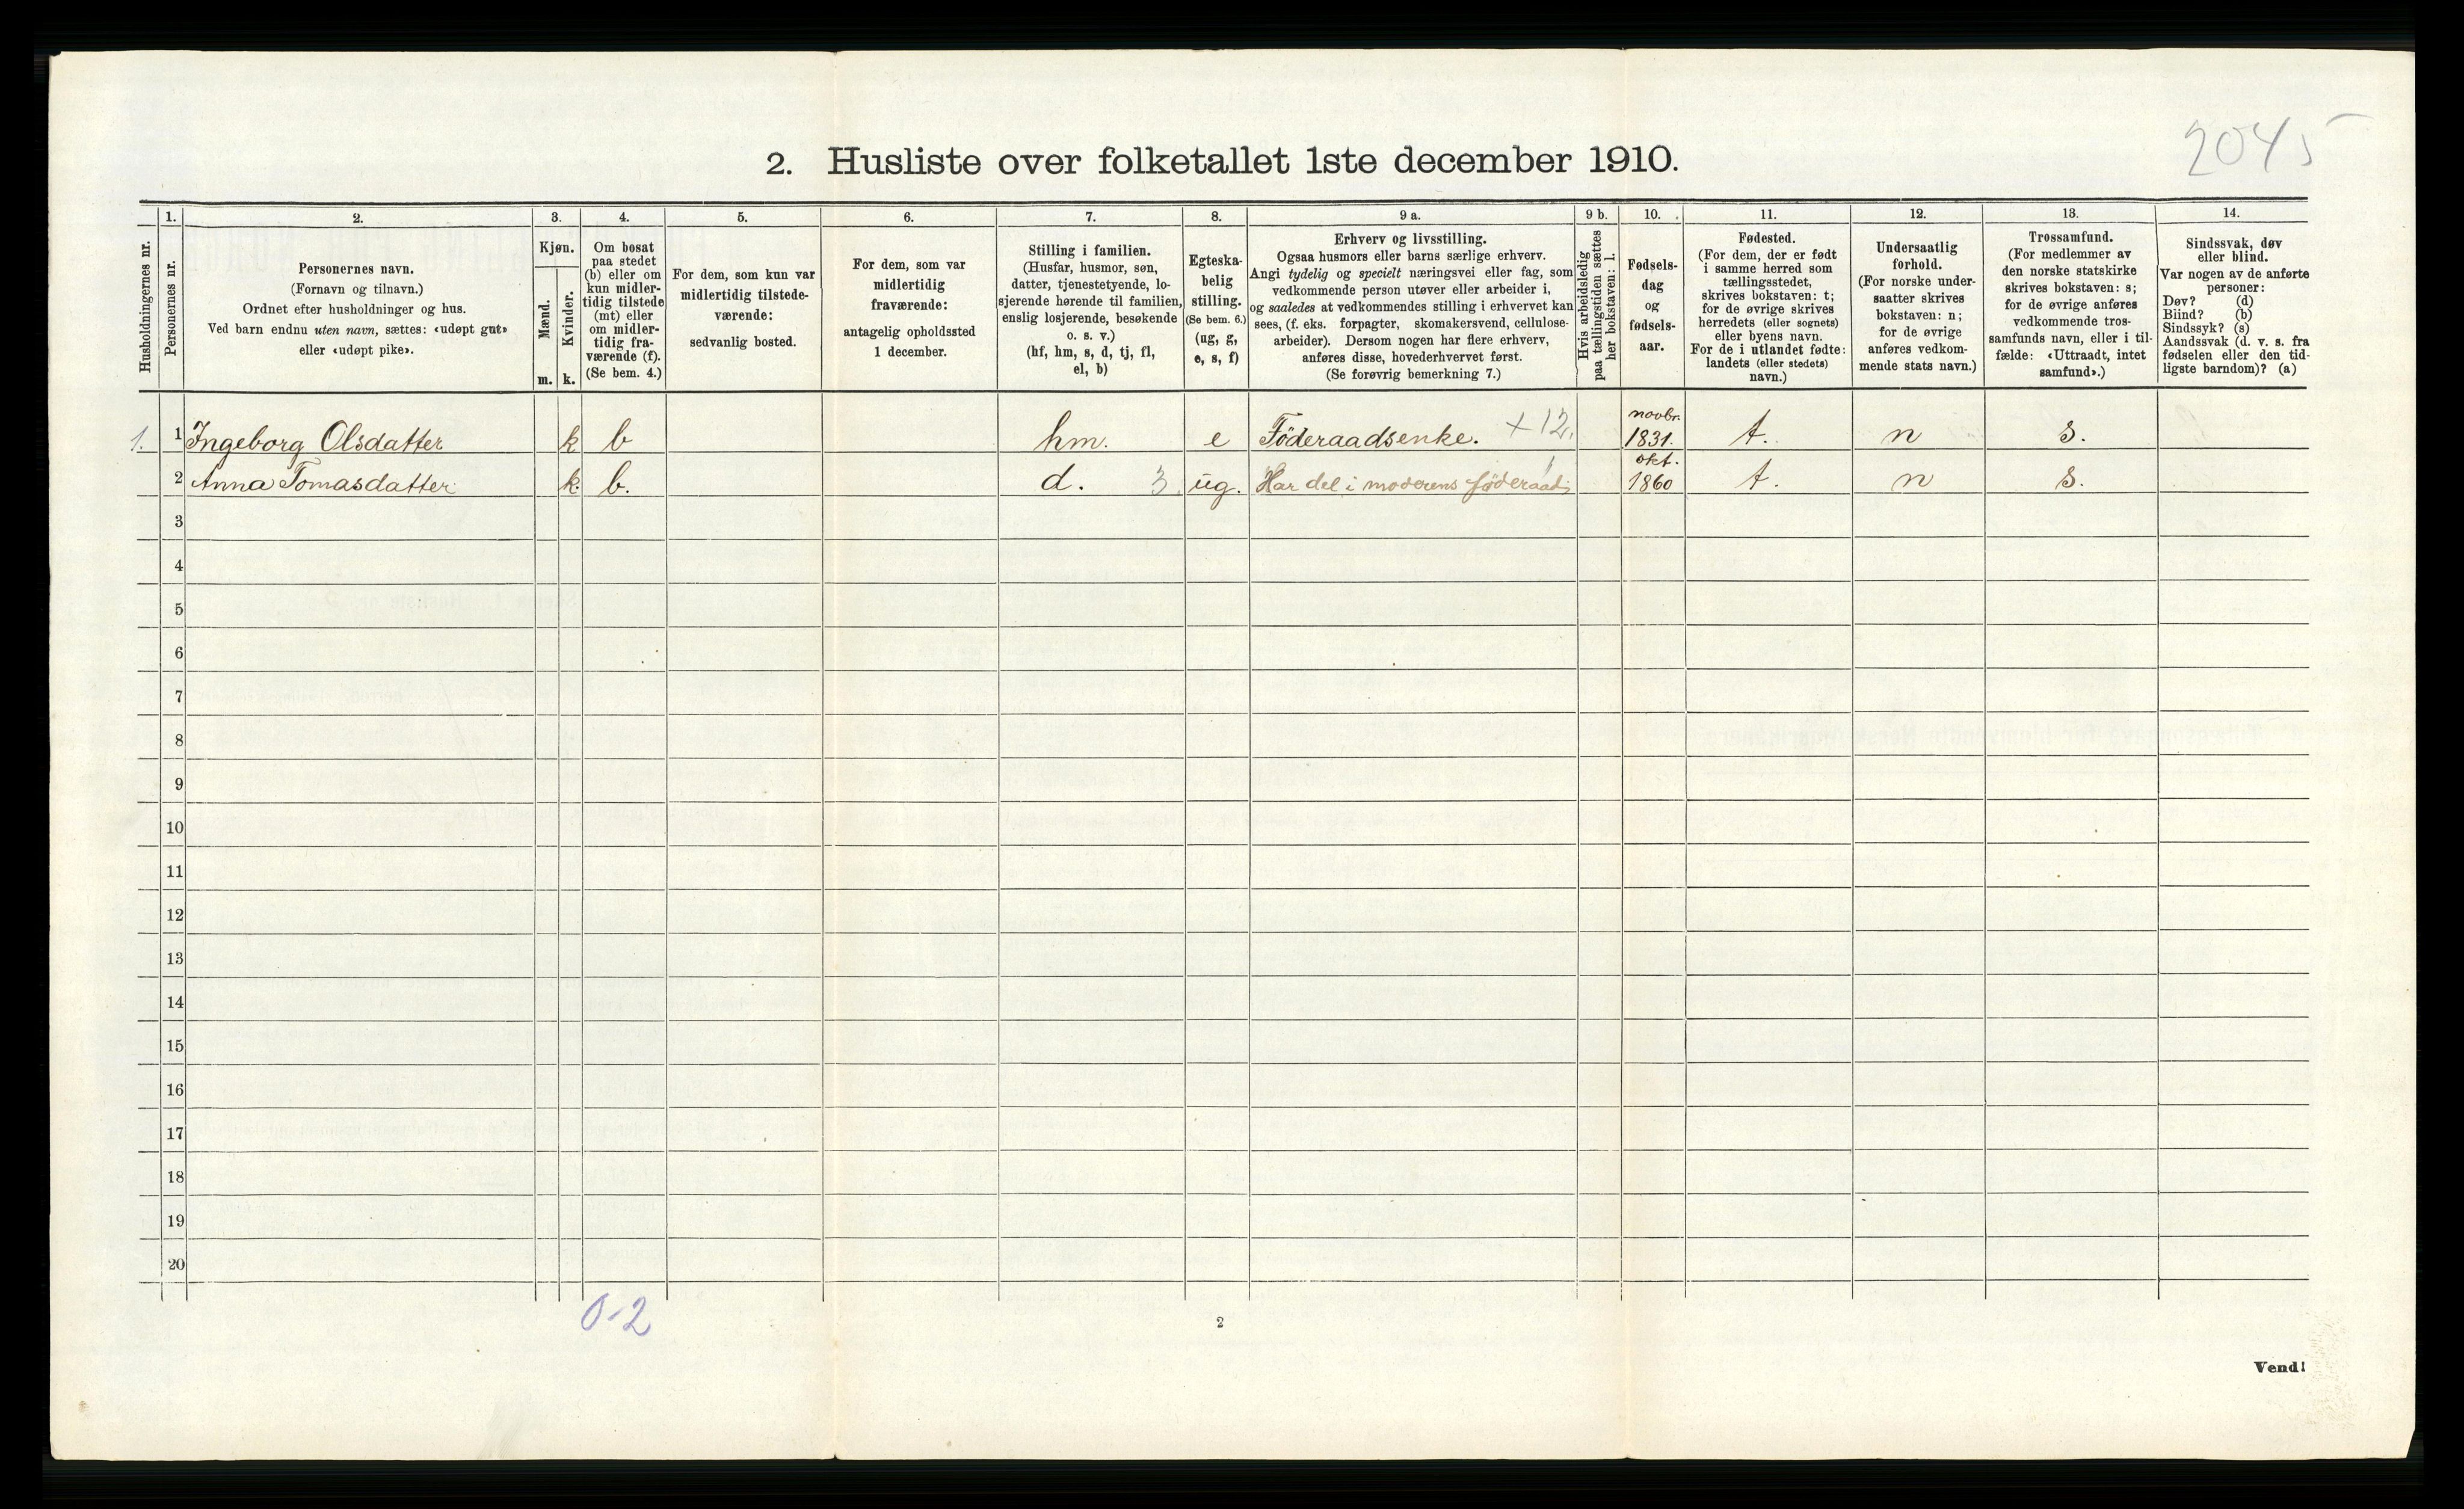 2045
2. Husliste over folketallet 1ste december 1910.
Husholdningernes nr.
1.
Personernes nr.
2.
Personernes navn.
(Fornavn og tilnavn.)
Ordnet efter husholdninger og hus.
Ved barn endnu uten navn, sættes: «udøpt gut»
eller «udøpt pike».
3.
Kjøn.
Mænd.
Kvinder.
m. k.
4.
Om bosat
paa stedet
(b) eller om
kun midler-
tidig tilstede
(mt) eller
om midler-
tidig fra-
værende (f).
(Se bem. 4.)
5.
For dem, som kun var
midlertidig tilstede-
værende:
sedvanlig bosted.
6.
For dem, som var
midlertidig
fraværende:
antagelig opholdssted
1 december.
7.
Stilling i familien.
(Husfar, husmor, søn,
datter, tjenestetyende, lo-
sjerende hørende til familien,
enslig losjerende, besøkende
o. s. v.)
(hf, hm, s, d, tj, fl,
el, b)
8.
Egteska-
belig
stilling.
(Se bem. 6.)
(ug, g,
e, s, f)
9 a.
Erhverv og livsstilling.
Ogsaa husmors eller barns særlige erhverv.
Angi tydelig og specielt næringsvei eller fag, som
vedkommende person utøver eller arbeider i,
og saaledes at vedkommendes stilling i erhvervet kan
sees, (f. eks. forpagter, skomakersvend, cellulose-
arbeider). Dersom nogen har flere erhverv,
anføres disse, hovederhvervet først.
(Se forøvrig bemerkning 7.)
9 b.
Hvis arbeidsledig
paa tællingstiden sættes
her bokstaven: l.
10.
Fødsels-
dag
og
fødsels-
aar.
11.
Fødested.
(For dem, der er født
i samme herred som
tællingsstedet,
skrives bokstaven: t;
for de øvrige skrives
herredets (eller sognets)
eller byens navn.
For de i utlandet fødte:
landets (eller stedets)
navn.)
12.
Undersaatlig
forhold.
(For norske under-
saatter skrives
bokstaven: n;
for de øvrige
anføres vedkom-
mende stats navn.)
13.
Trossamfund.
(For medlemmer av
den norske statskirke
skrives bokstaven: s;
for de øvrige anføres
vedkommende tros-
samfunds navn, eller i til-
fælde: «Uttraadt, intet
samfund».)
14.
Sindssvak, døv
eller blind.
Var nogen av de anførte
personer:
Døv? (d)
Blind? (b)
Sindssyk? (s)
Aandssvak (d. v. s. fra
fødselen eller den tid-
ligste barndom)? (a)
1. 1 Ingeborg Olsdatter k b hm. e Föderaadsenke. +12. novbr. 1831. t. n s.
2 Anna Tomasdatter k. b. d. 3. ug. Har del i moderens föderaad; okt. 1860 t. n s.
3
4
5
6
7
8
9
10
11
12
13
14
15
16
17
18
19
20
0-2
2
Vend!